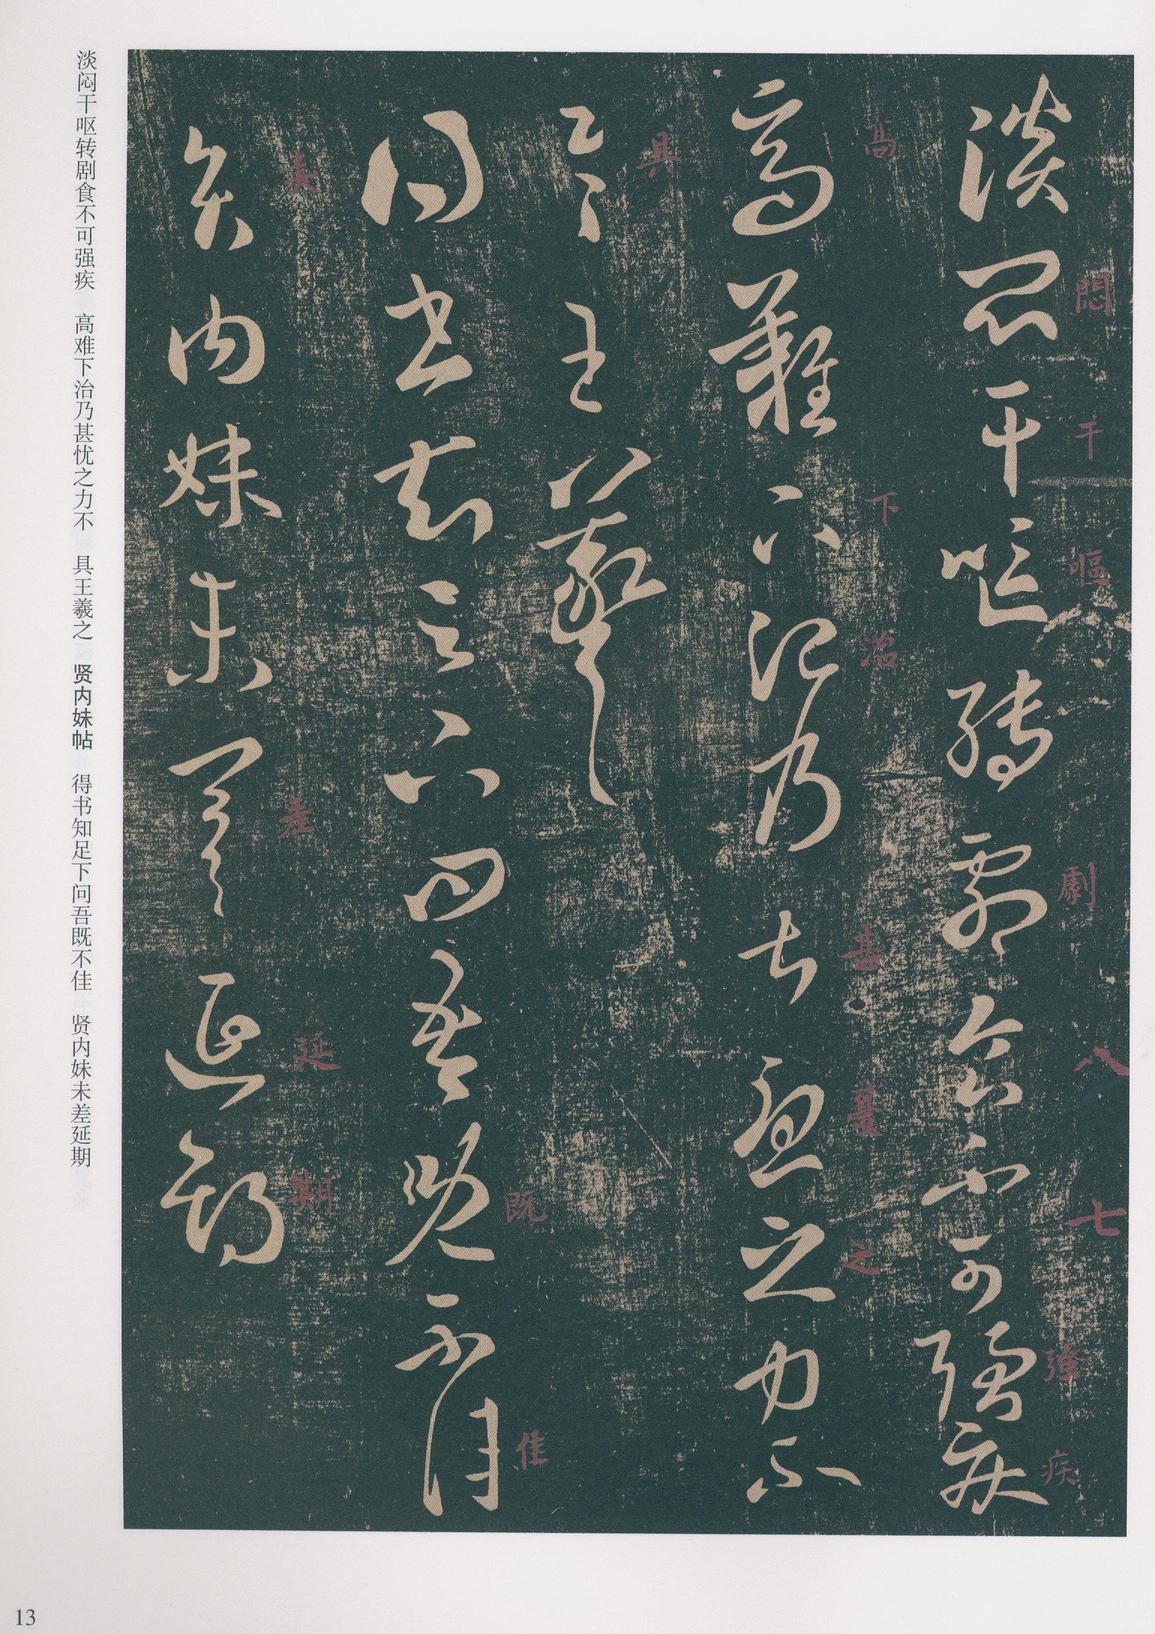 悶干嘔劇八七強疾
淡悶干嘔轉劇食不可強疾
高下治甚憂之
高難下治乃甚憂之力不
具
具王羲之
既佳
得書知足下問吾既不佳
差延期
賢內妹未差延期
淡闷干呕转剧食不可强疾　高难下治乃甚忧之力不　具王羲之　贤内妹帖　得书知足下问吾既不佳　贤内妹未差延期
13